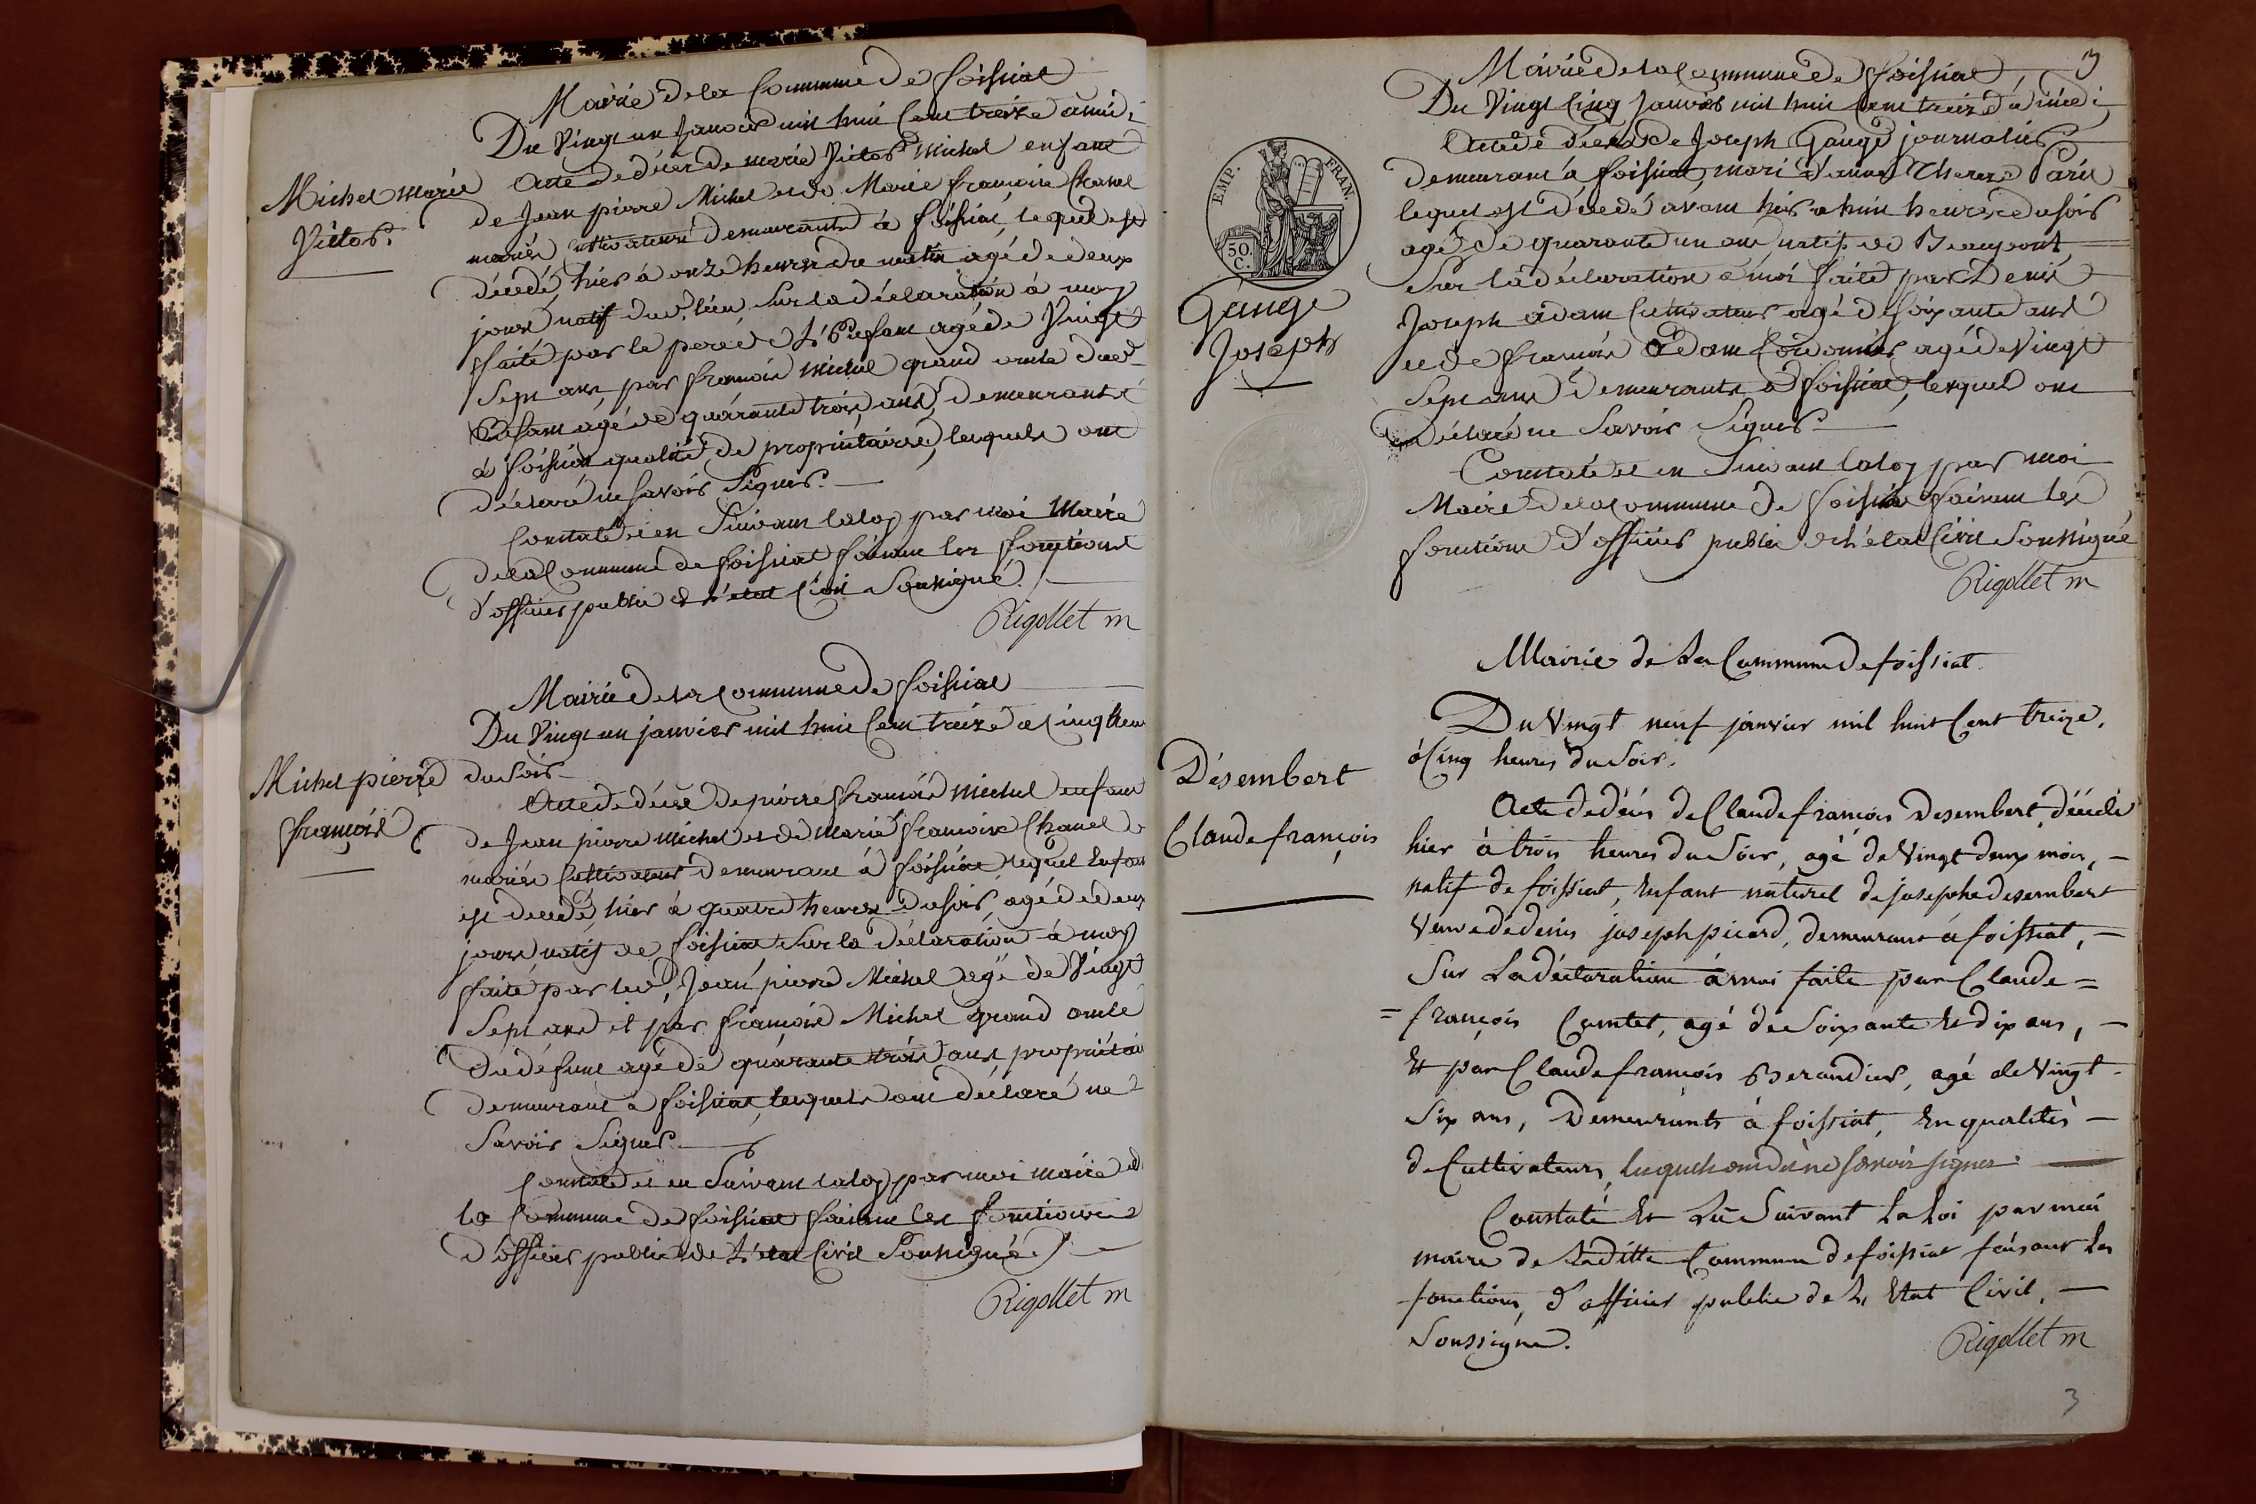 Mairie de la Commune de foissiat
Du Vingt un Janvier mil huit Cent treize a midi
Michel marie
Victor.
Acte de décès de marie Victor Michel enfant
de Jean pierre Michel et de Marie françoise Chanel
mariés Cultivateurs demeurants à foissiat, lequel est
décédé hier à onze heures du matin agé de deux
jours natif dud. lieu, Sur la déclaration à moy
faite par le pere de L'Enfant agé de Vingt
Sept ans, par françois Michel grand oncle dud.
Enfant agé de quarante trois ans, demeurants
à foissiat qualité de propriétaires, lesquels ont
déclaré ne Savoir Signer.
Constaté et en Suivant la loy par moi Maire
de la Commune de foissiat faisant les fonctions
d'officier public de L'état Civil Soussigné.
Rigollet m
Mairie de la Commune de foissiat
Du Vingt un janvier mil huit Cent treize a Cinq heur
Michel pierre
françois
du Soir
Acte de décès de pierre françois Michel enfant
de Jean pierre Michel et de Marie françoise Chanel
mariés Cultivateurs demeurant à foissiat lequel Enfan
est décédé hier à quatre heures du Soir, agé de deux
jours natif de foissiat Sur la déclaration à moy
faite par led. Jean pierre Michel agé de Vingt
Sept ans et par françois Michel grand oncle
du défunt agé de quarante trois ans, propriétai
demeurant à foissiat, lesquels ont déclaré ne
Savoir Signer.
Constaté et en Suivant la loy par moi maire de
la Commune de foissiat faisant les fonctions
d'officier public de L'état Civil Soussigné
Rigollet m
3
Mairie de la Commune de foissiat
Du Vingt Cinq Janvier mil huit Cent treize à midi
EMP. FRAN.
50 C.
Gauge
Joseph
Acte de décès de Joseph Gauge journalier
demeurant à foissiat, mari d'anne Therese Paris
lequel est décédé avant hier a huit heures du soir
agé de quarante un ans natif de Beaupont
Sur la déclaration à moi faite par Denis
Joseph adam Cultivateur agé de soixante ans
et de françois adam Cordonnier agé de Vingt
Sept ans demeurants à foissiat, lesquels ont
déclaré ne Savoir Signer
Constaté et en Suivant la loy par moi
Maire de la Commune de foissiat faisant les
fonctions d'officier public de l'état Civil Soussigné
Rigollet m
Mairie de La Commune de foissiat.
Du Vingt neuf janvier mil huit Cent treize,
à Cinq heures du Soir.
Désembert
Claude françois
Acte de décès de Claude françois Desembert, décédé
hier à trois heures du Soir, agé de Vingt deux mois,
natif de foissiat, Enfant naturel de josephe desembert
Veuve de denis joseph picard, demeurant à foissiat,
Sur La déclaration à moi faite par Claude =
= françois Comtet, agé de Soixante Et dix ans,
Et par Claude françois Berandier, agé de Vingt
Six ans, Demeurants à foissiat, En qualités
de Cultivateurs, lesquels ont dit ne Savoir signer.
Constaté Et Lu Suivant La Loi par moi
maire de Laditte Commune de foissiat faisant les
fonctions, d'officier public de L'Etat Civil,
Soussigné.
Rigollet m
3